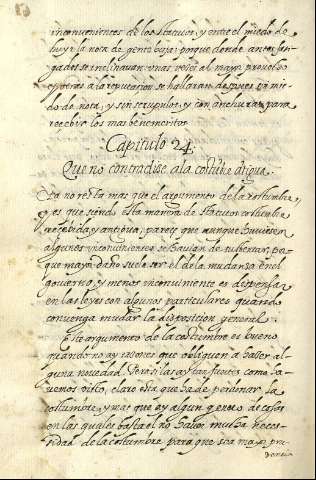 inconvenientes de los Statutos, y entre el miedo de
huyr la nota de gente baja: porque donde antes
se inclinavan unas veses al mayor provecho
y otras a la reputacion se hallaran despues sin mie-
do de nota, y sin escrupulos, y con anchura para
recebir los mas benemeritos
Capitulo 24.
Que no contradise a la costũbre ãtigua.
Ya no resta mas que el argumento de la costumbre,
y es que siendo esta manera de Statutos costumbre
recebida y antigua, pareçe que aunque huviesen
algunos inconvenientes se havian de sustentar, por-
que mayor daño suele ser el de la mudansa en el
govierno, y menos inconveniente es dispensar
en las leyes con algunos particulares quando
convenga mudar la disposicion general.
Este argumento de la costumbre es bueno
quando no ay rasones que obliguen a haser al-
guna novedad. Pero si las ay tan fuertes como ha-
vemos visto, claro esta que ha de perdonar la
costumbre, y mas que ay algun genero de cosas
en las quales basta el no haver mucha neces-
sidad de la costumbre para que sea mayor pru-
dencia